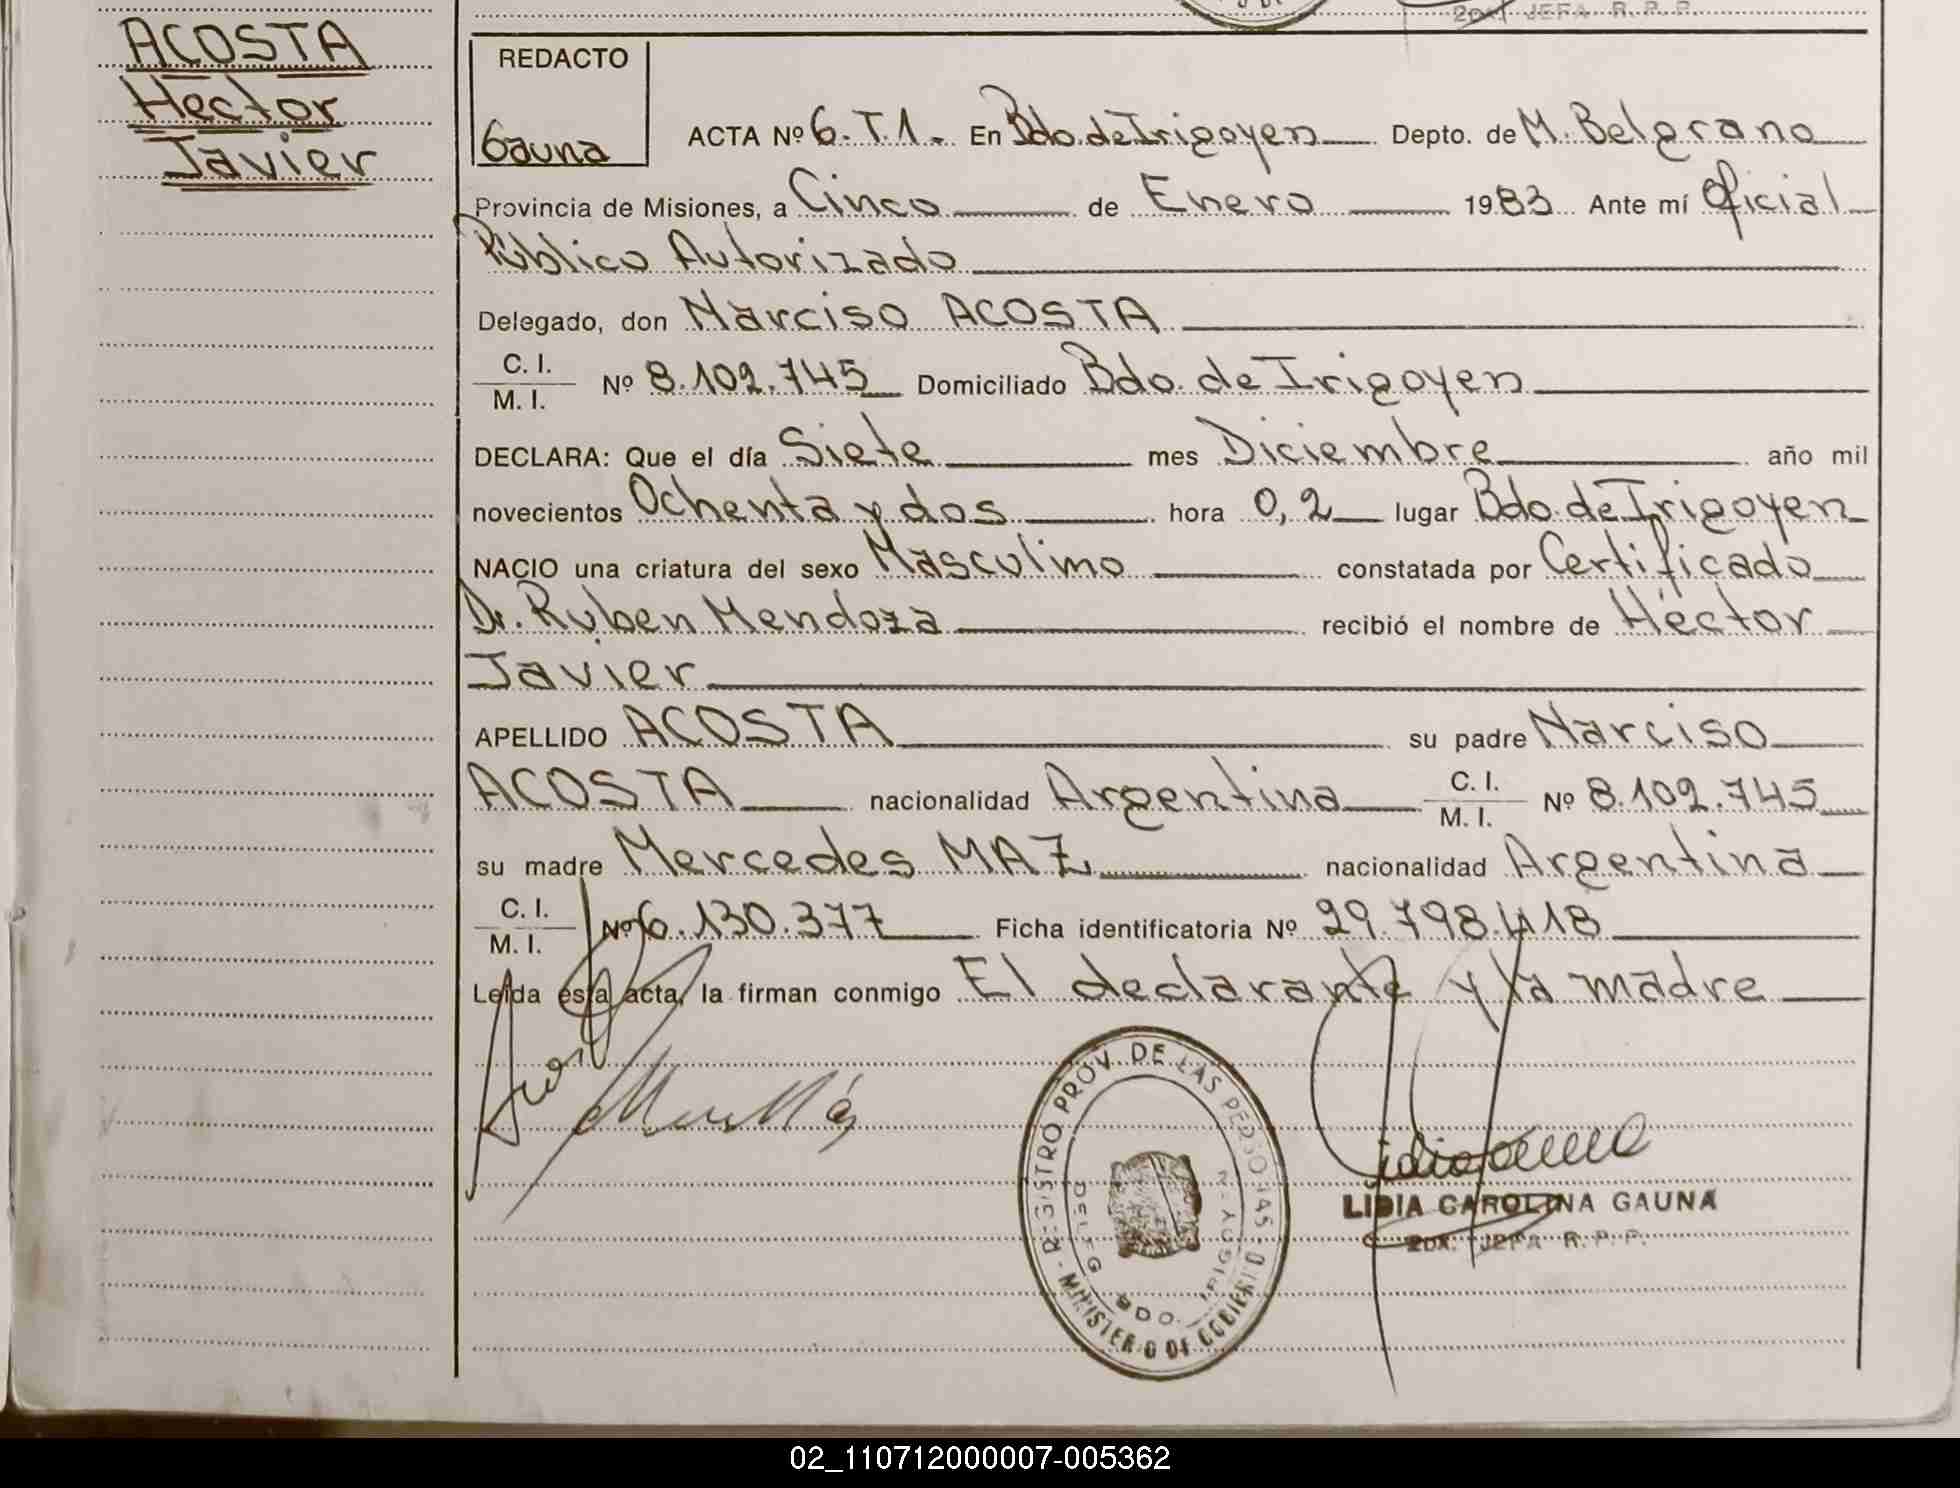 2DA. JEFA R.P.P.
ACOSTA
Hector
Javier
REDACTO
Gauna
ACTA Nº 6.T.1. En Bdo. de Irigoyen Depto. de M. Belgrano
Provincia de Misiones, a Cinco de Enero 1983 Ante mí Oficial
Público Autorizado
Delegado, don Narciso ACOSTA
C. I.
M. I. Nº 8.102.745 Domiciliado Bdo. de Irigoyen
DECLARA: Que el día Siete mes Diciembre año mil
novecientos Ochenta y dos hora 0,2 lugar Bdo. de Irigoyen
NACIO una criatura del sexo Masculino constatada por Certificado
Dr. Ruben Mendoza recibió el nombre de Héctor
Javier
APELLIDO ACOSTA su padre Narciso
ACOSTA nacionalidad Argentina C. I. M. I. Nº 8.102.745
su madre Mercedes MAZ nacionalidad Argentina
C. I.
M. I. Nº 6.130.377 Ficha identificatoria Nº 29.798.418
Leída esta acta, la firman conmigo El declarante y la madre
REGISTRO PROV. DE LAS PERSONAS - MINISTERIO DE GOBIERNO
DELEG. BDO. IRIGOYEN
LIDIA CAROLINA GAUNA
2DA. JEFA R.P.P.
02_110712000007-005362